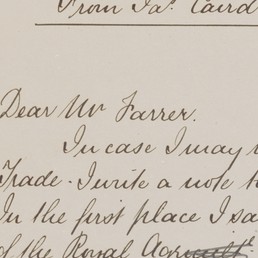 From Jas. Caird
Dear Mr Farrer.
In case I may
Trade. I write a note
In the first place I
of the Royal